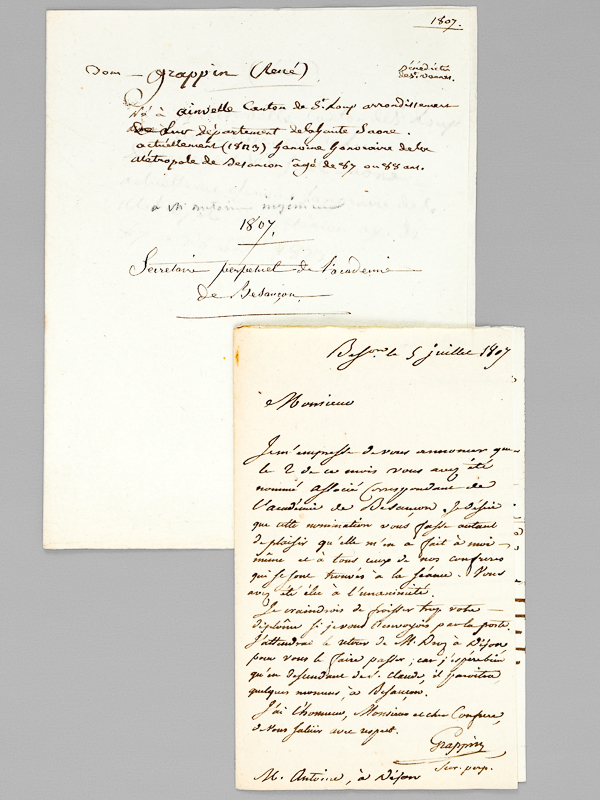 1807.
Dom Grappin (René)
bénédictin
de St. Vannes.
Né à Ainvelle Canton de St. Loup arrondissement
de Lure département de la haute Saone.
actuellement (1823) Chanoine honoraire de la
Métropole de Besançon âgé de 87 ou 88 ans.
à Mr Antoine ingénieur
1807.
Secretaire perpetuel de l'academie
de Besançon
Besson. le 5 juillet 1807
Monsieur
Je m'empresse de vous annoncer que
le 2 de ce mois vous avez été
nommé associé correspondant de
l'académie de Besançon. Je désire
que cette nomination vous fasse autant
de plaisir qu'elle m'en a fait à moi-
même et à tous ceux de nos confreres
qui se sont trouvés à la séance. Vous
avez été élu à l'unanimité.
Je craindrois de froisser trop votre
diplôme si je vous l'envoyois par la poste.
J'attendrai le retour de M. à Dijon
pour vous le faire passer; car j'espère bien
qu'en descendant de St. Claude, il
quelques momens, à Besançon.
J'ai l'honneur, Monsieur et cher Confrere,
de vous saluer avec respect.
Grappin
Secr. perp.
M. Antoine, à Dijon